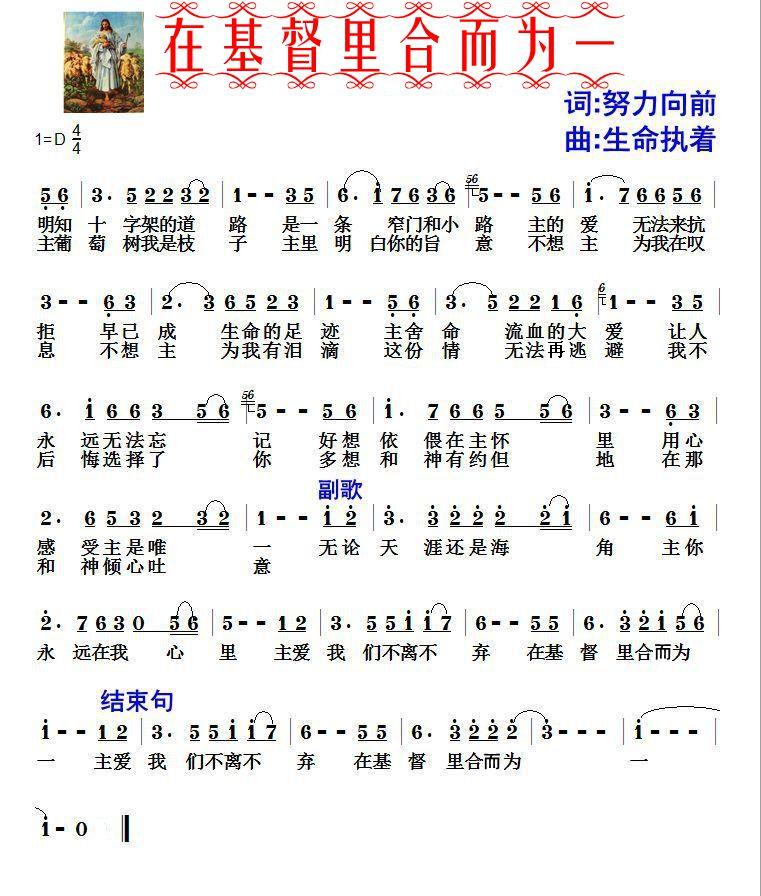 在基督里合而为一
词:努力向前
曲:生命执着
1=D 4/4
5 6 | 3· 5 2 2 3 2 | 1 - - 3 5 | 6· i 7 6 3 6 | 56 5 - - 5 6 | i· 7 6 6 5 6 |
明知 十 字架的道 路 是一 条 窄门和小 路 主的 爱 无法来抗
主葡 萄 树我是枝 子 主里 明 白你的旨 意 不想 主 为我在叹
3 - - 6 3 | 2· 3 6 5 2 3 | 1 - - 5 6 | 3· 5 2 2 1 6 | 6 1 - - 3 5 |
拒 早已 成 生命的足 迹 主舍 命 流血的大 爱 让人
息 不想 主 为我有泪 滴 这份 情 无法再逃 避 我不
6· i 6 6 3 5 6 | 56 5 - - 5 6 | i· 7 6 6 5 5 6 | 3 - - 6 3 |
永 远无法忘 记 好想 依 偎在主怀 里 用心
后 悔选择了 你 多想 和 神有约但 地 在那
副歌
2· 6 5 3 2 3 2 | 1 - - i 2 | 3· 3 2 2 2 2 i | 6 - - 6 i |
感 受主是唯 一 无论 天 涯还是海 角 主你
和 神倾心吐 意
2· 7 6 3 0 5 6 | 5 - - 1 2 | 3· 5 5 i i 7 | 6 - - 5 5 | 6· 3 2 i 5 6 |
永 远在我 心 里 主爱 我 们不离不 弃 在基 督 里合而为
结束句
i - - 1 2 | 3· 5 5 i i 7 | 6 - - 5 5 | 6· 3 2 2 2 | 3 - - - | i - - |
一 主爱 我 们不离不 弃 在基 督 里合而为 一
i - 0 ‖